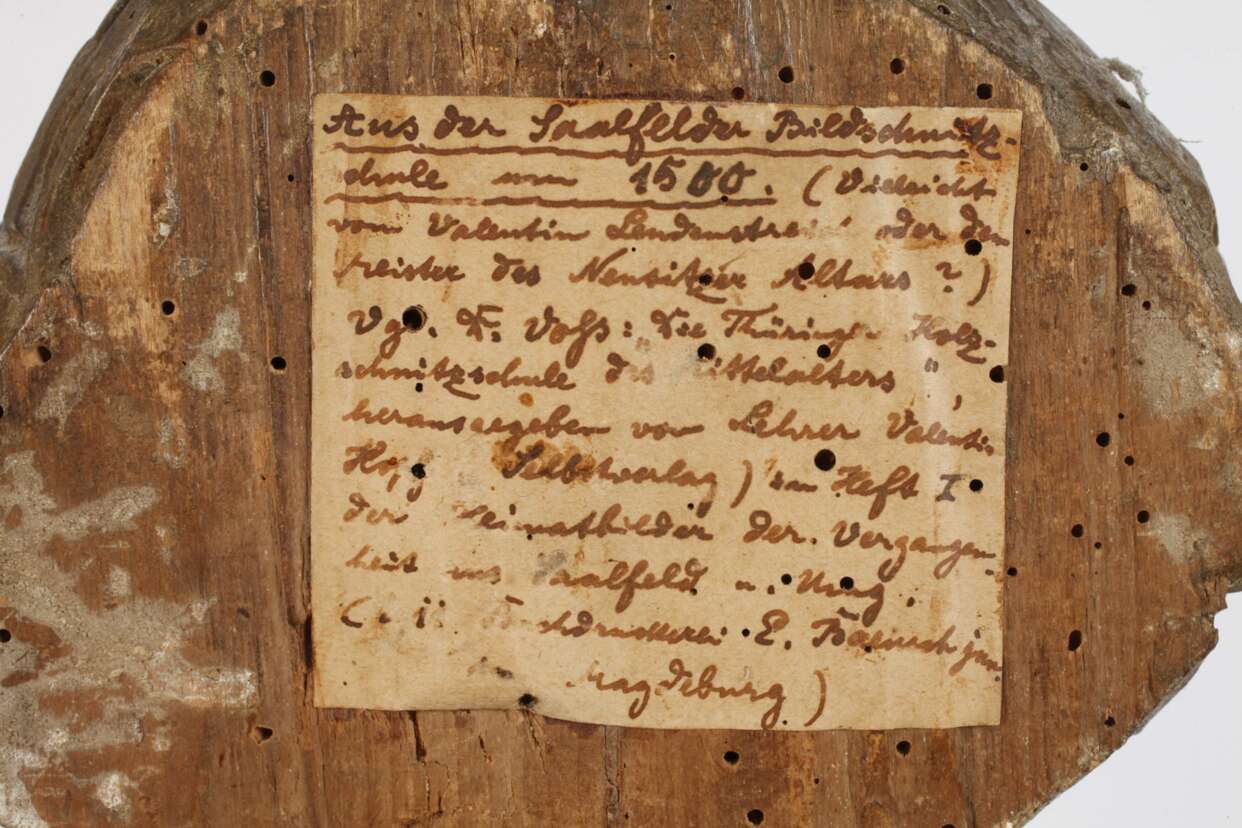 Aus der Saalfelder Bildschnitz-
schule um 1500. (Vieleicht
vom Valentin Lendenstreich oder dem
Meister des Neusitzer Altars?)
Vgl. K. Voss: „Die Thüringer Holz-
schnitzschule des Mittelalters“,
herausgegeben vom Lehrer Valentin
Selbstverlag) im Heft I
der Heimatbilder der Vergangen-
heit aus Saalfeld u. Umg.
Buchdruckerei E. jun.
Magdeburg)